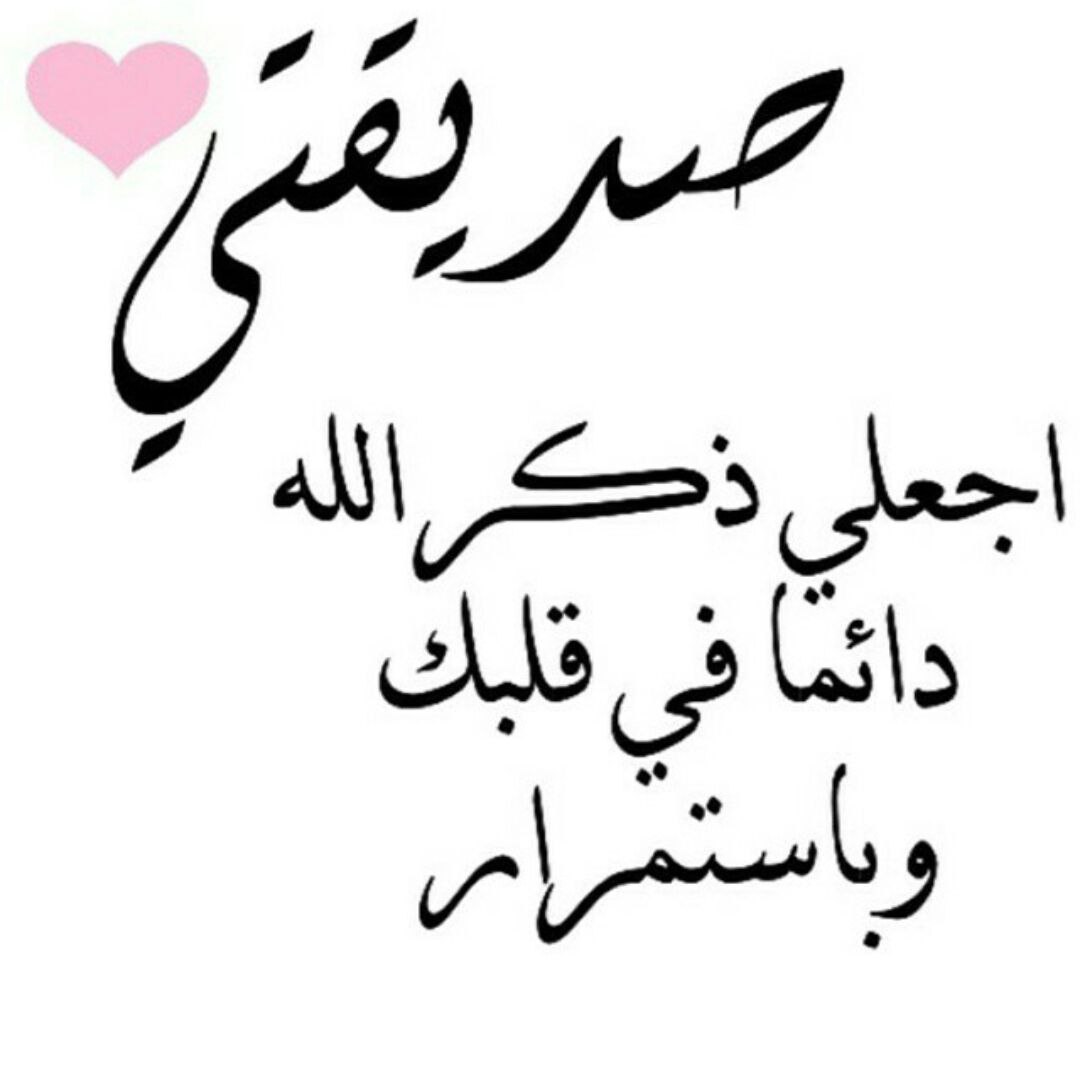 صديقتي
اجعلي ذكر الله
دائما في قلبك
وباستمرار